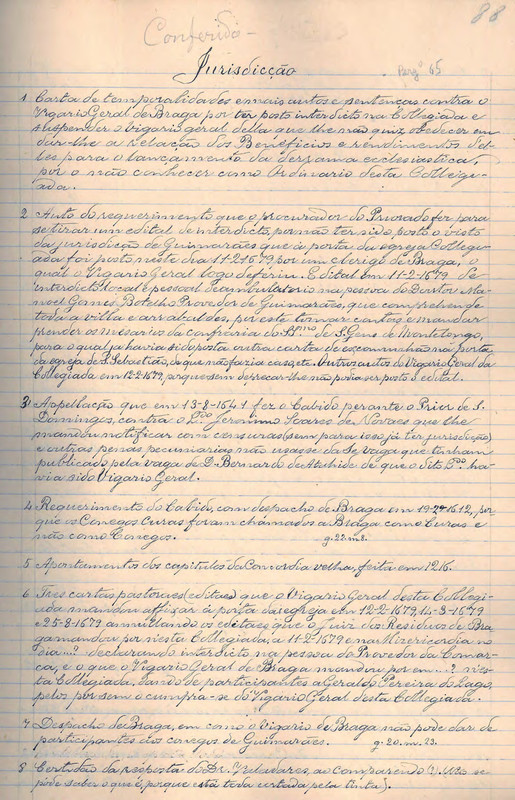 88
Conferido -
Jurisdicção
Perg.º 45
1 Carta de temporalidades e mais autos e sentenças contra o
Vigario Geral de Braga por ter posto interdicto na Collegiada e
suspender o vigario geral della que lhe não quiz obedecer em
dar-lhe a relação dos Beneficios e rendimentos del-
les para o lançamento da derrama ecclesiastica,
por o não conhecer como Ordinario desta Collegi-
ada.
2 Auto do requerimento que o procurador do Priorado fez para
se tirar um edital de interdicto, por não ter sido posto o visto
da jurisdicção de Guimarães que á porta da egreja Colleg-
ada foi posto neste dia 11-2-1679, por um clerigo de Braga, o
qual o Vigario Geral logo deferiu. Edital em 11-2-1679 de
interdicto local e pessoal deambulatorio na pessoa do Doutor Ma-
noel Gomes Botelho Provedor de Guimarães, que comprehende
toda a villa e arrabaldes, por este tomar contas e mandar
prender os mesarios da confraria do S.mo de S. Gens de Montelongo,
para o qual ja havia sido posta outra carta de excommunhão na porta
da egreja de S. Sebastião, de que não fazia caso, etc. Outros autos do Vigario Geral da
Collegiada em 12-2-1679, porque sem deprecar-lhe não podia ser posto o edital.
3 Appellação que em 13-8-1641 fez o Cabido perante o Prior de S.
Domingos, contra o L.do Jeronimo Soares de Novaes que lhe
mandou notificar com censuras (sem para isso já ter jurisdicção)
e outras penas pecuniarias não usasse da Sé vaga que tinham
publicado pela vaga de D. Bernardo de Atahide de que o dito L.do ha-
via sido Vigario Geral.
4 Requerimento do Cabido, com despacho de Braga em 19-2-1612, por-
que os Conegos Curas foram chamados a Braga como Curas e
não como Conegos. g. 22. m. 8.
5 Apontamentos dos capitulos da Concordia velha, feita em 1216.
6 Tres cartas pastoraes (editaes) que o Vigario Geral desta Collegi-
ada mandou affixar á porta da egreja em 12-2-1679, 14-3-1679
e 25-8-1679 annullando os editaes que o Juiz dos Residuos de Bra-
ga mandou por nesta Collegiada, a 11-2-1679 e na Misericordia no
dia ...? declarando interdicto na pessoa do Provedor da Comar-
ca, e o que o Vigario Geral de Braga mandou por em ...? nes-
ta Collegiada, dando de participantes a Geraldo Pereira do Lago,
pelos por sem o cumpra-se do Vigario Geral desta Collegiada.
7 Despacho de Braga, em como o vigario de Braga não pode dar de
participantes aos conegos de Guimarães. g. 20. m. 23.
8 Certidão da resposta do Dr. Valladares, ao comparendo (?). (Não se
póde saber o que é, porque está toda cortada pela tinta).